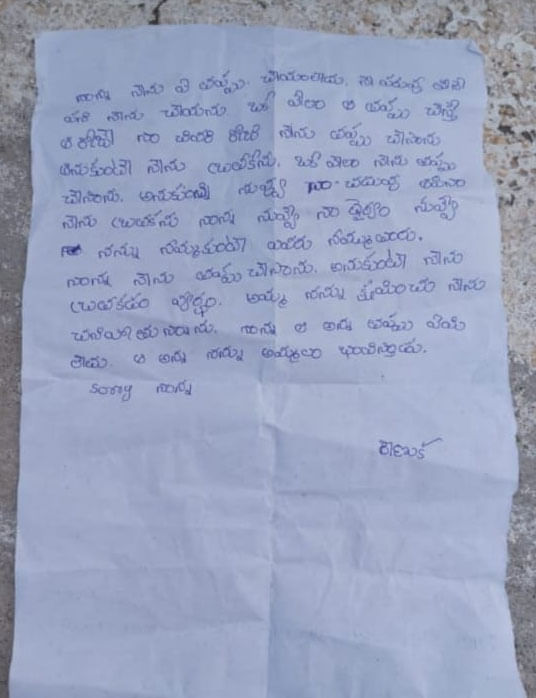 నాన్న నేను ఏ తప్పు చేయలేదు. నా పరువు
పని నేను చేయను. ఒక వేల ఆ తప్పు చేస్తే
ఆ రోజే నా చివరి రోజు నేను తప్పు చేసాను
అనుకుంటే నేను బ్రతకను. ఒక వేల నేను తప్పు
చేసాను. అనుకుంటే నువ్వు నా
నేను బ్రతకను నాన్న నువ్వే నా ధైర్యం నువ్వే
నన్ను నమ్మకుంటే ఎవరు నమ్ముతారు.
నాన్న నేను తప్పు చేసాను. అనుకుంటే నేను
బ్రతకడం వ్యర్థం. అమ్మ నన్ను క్షమించు నేను
చనిపోతున్నాను. నాన్న ఆ అన్న తప్పు ఏమి
లేదు. ఆ అన్న నన్ను అమ్మలా భావిస్తాడు.
sorry నాన్న
రేణుక